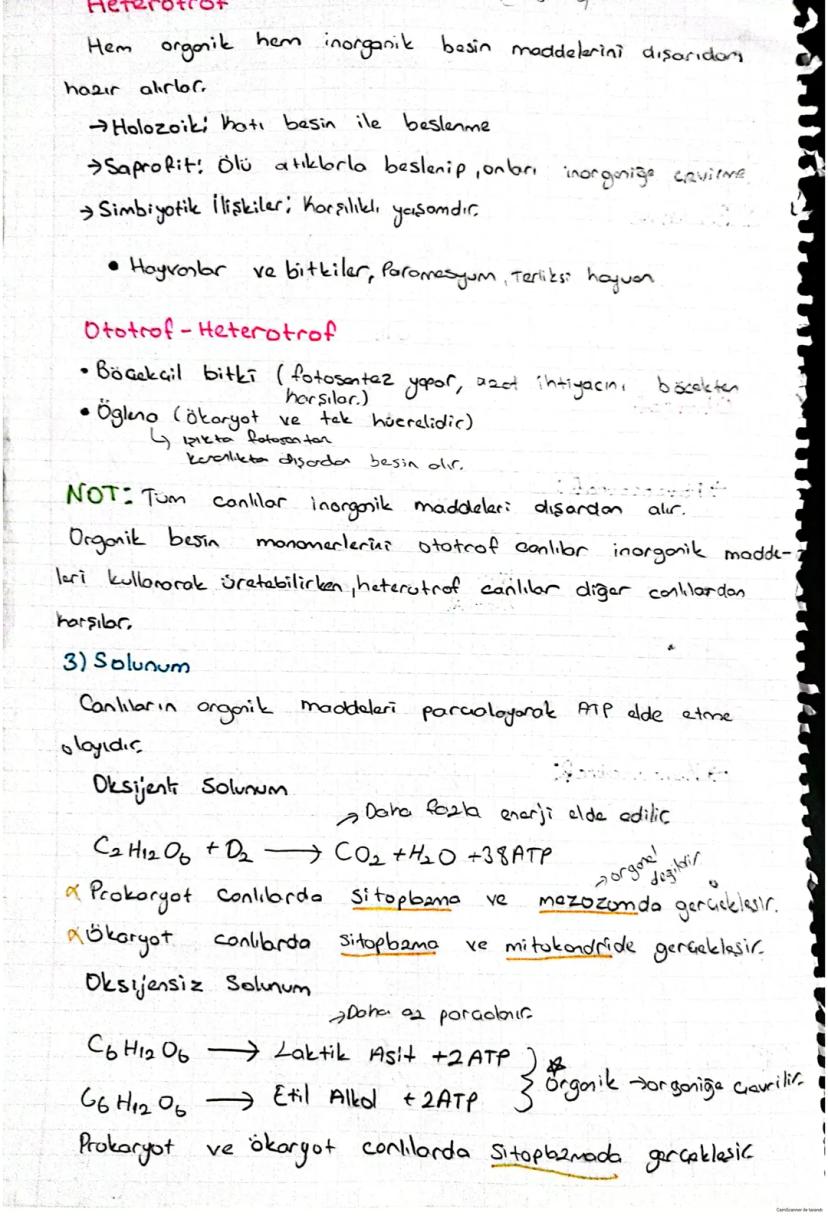 Heterotrof
Hem organik hem inorganik besin maddelerini dışarıdan
hazır alırlar.
→Holozoik: Katı besin ile beslenme
→Saprofit: Ölü atıklarla beslenip, onları inorganiğe çevirme
→Simbiyotik İlişkiler: Karşılıklı yaşamdır.
• Hayvanlar ve bitkiler, Paramesyum, Terliksi hayvan
Ototrof-Heterotrof
• Böcekçil bitki (fotosentez yapar, azot ihtiyacını böcekten
karşılar.)
• Öglena (ökaryot ve tek hücrelidir)
↳ ışıkta fotosentez
karanlıkta dışardan besin alır.
NOT: Tüm canlılar inorganik maddeleri dışardan alır.
Organik besin monomerlerini ototrof canlılar inorganik madde-
leri kullanarak üretebilirken, heterotrof canlılar diğer canlılardan
karşılar.
3) Solunum
Canlıların organik maddeleri parçalayarak ATP elde etme
olayıdır.
Oksijenli Solunum
→ Daha fazla enerji elde edilir
C2H12O6 + O2 → CO2 + H2O + 38ATP
→ organel değildir.
α Prokaryot canlılarda sitoplazma ve mezozomda gerçekleşir.
α Ökaryot canlılarda sitoplazma ve mitokondride gerçekleşir.
Oksijensiz Solunum
→Daha az parçalanır.
C6H12O6 → Laktik Asit +2 ATP
☆ Organik →organiğe çevrilir.
C6H12O6 → Etil Alkol +2ATP
Prokaryot ve ökaryot canlılarda sitoplazmada gerçekleşir
CamScanner ile tarandı